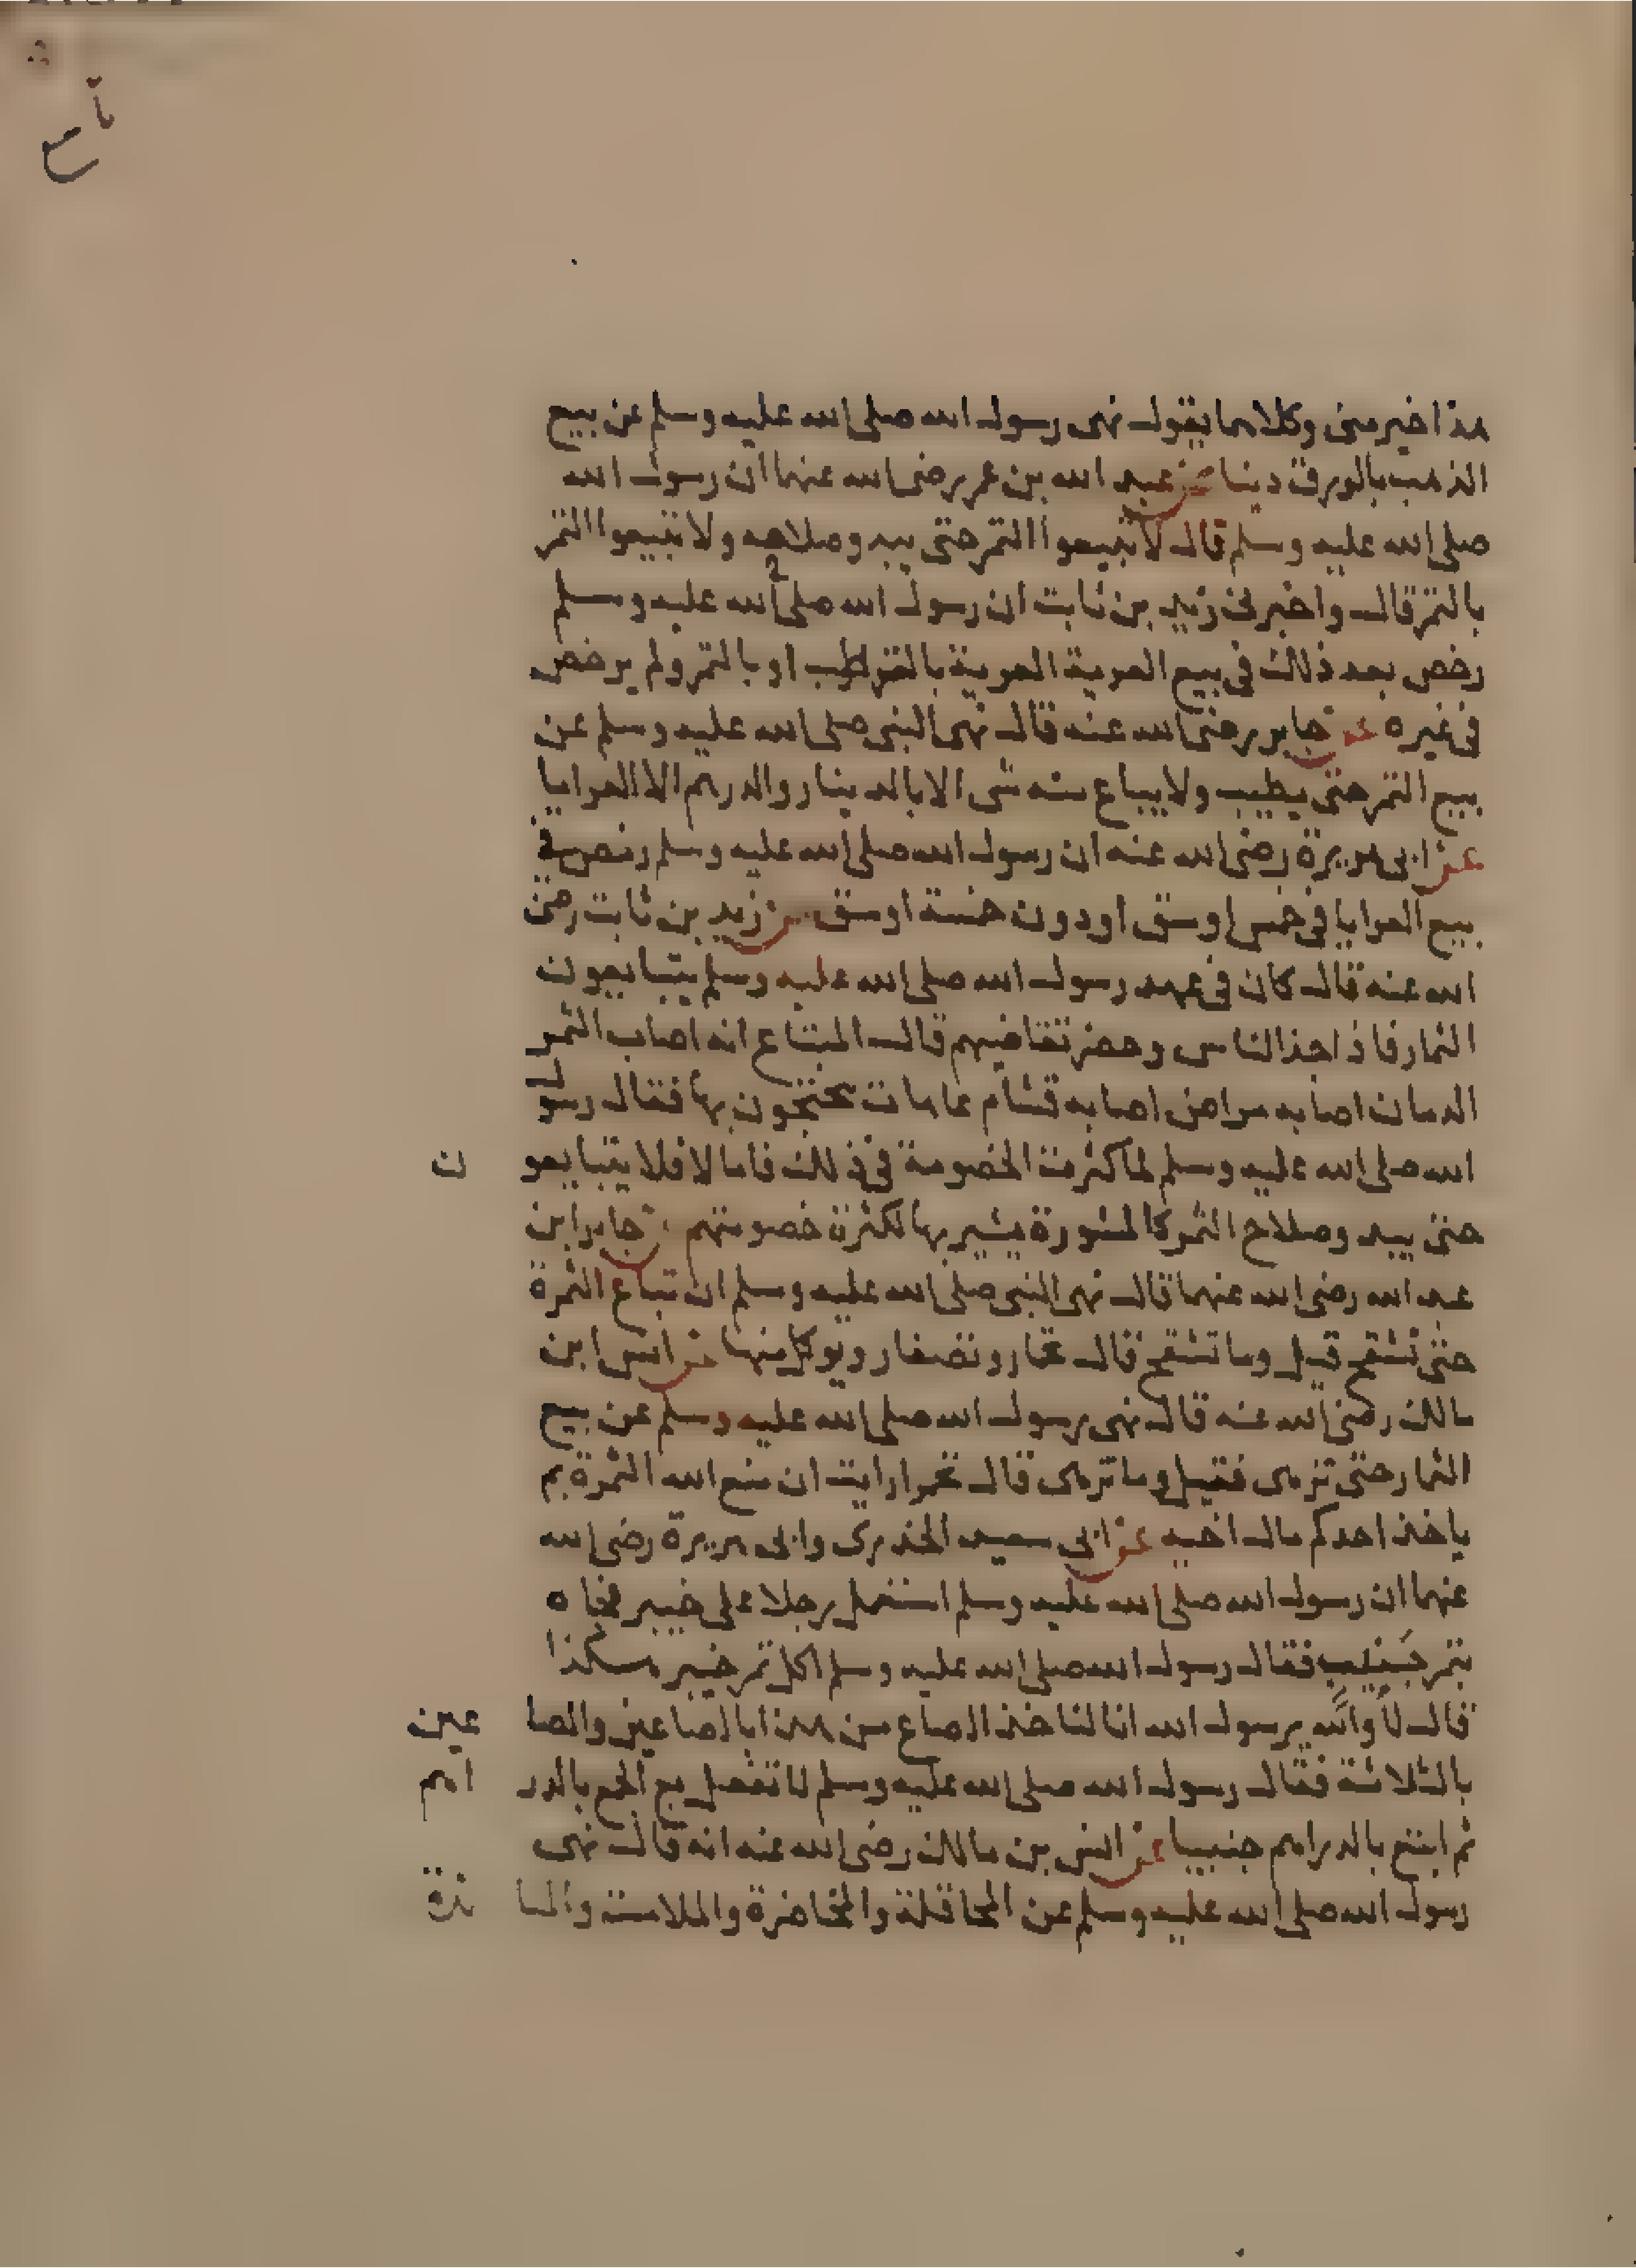 هذا خير منى وكلاهما يقول نهى رسول الله صلى الله عليه وسلم عن بيع
الذهب بالورق دينا عن عبد الله بن عمر رضى الله عنهما ان رسول الله
صلى الله عليه وسلم قال لا تبيعوا التمر حتى يبد وصلاحه ولا تبيعوا التمر
بالتمر قال واخبرنى زيد بن ثابت ان رسول الله صلى الله عليه وسلم
رخص بعد ذلك فى بيع العرية العرية بالرطب او بالتمر ولم يرخص
فى غيره عن جابر رضى الله عنه قال نهى النبى صلى الله عليه وسلم عن
بيع التمر حتى يطيب ولا يباع منه شى الا بالدينار والدرهم الا العرايا
عن ابى هريرة رضى الله عنه ان رسول الله صلى الله عليه وسلم رخص فى
بيع العرايا فى خمس اوسق او دون خمسة اوسق عن زيد بن ثابت رضى
الله عنه قال كان فى عهد رسول الله صلى الله عليه وسلم يتبايعون
الثمار فاذا جذ الناس وحضر تقاضيهم قال المبتاع انه اصاب الثمر
الدمان اصابه مراض اصابه قشام عاهات يحتجون بها فقال رسول
الله صلى الله عليه وسلم لما كثرت الخصومة فى ذلك فاما لا فلا يتبايعون
حتى يبد وصلاح الثمر كالمشورة يشير بها لكثرة خصومتهم جابر ابن
عبد الله رضى الله عنهما قال نهى النبى صلى الله عليه وسلم ان تباع الثمرة
حتى تشقح قيل وما تشقح قال تحمار وتصفار ويوكل منها عن انس ابن
مالك رضى الله عنه قال نهى رسول الله صلى الله عليه وسلم عن بيع
الثمار حتى تزهى فقيل وما تزهى قال تحمر ارايت ان منع الله الثمرة بم
ياخذ احدكم مال اخيه عن ابى سعيد الخدرى وابى هريرة رضى الله
عنهما ان رسول الله صلى الله عليه وسلم استعمل رجلا على خيبر فجاه
بتمر جنيب فقال رسول الله صلى الله عليه وسلم اكل تمر خيبر هكذا
قال لا والله يرسول الله انا لناخذ الصاع من هذا بالصاعين والصاعين
بالثلاثة فقال رسول الله صلى الله عليه وسلم لا تفعل بع الجمع بالدراهم
ثم ابتع بالدراهم جنيبا عن انس بن مالك رضى الله عنه انه قال نهى
رسول الله صلى الله عليه وسلم عن المحاقلة والمخاضرة والملامسة والمنابذة